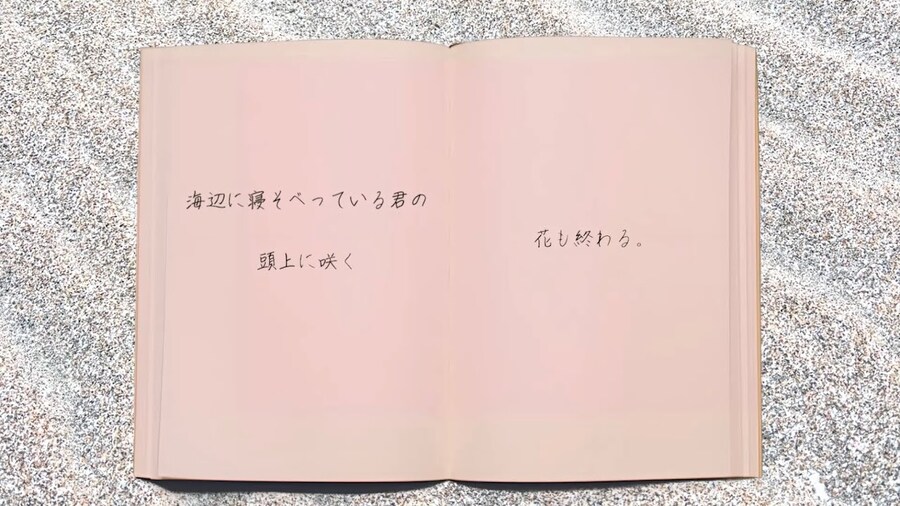 海辺に寝そべっている君の
頭上に咲く
花も終わる。